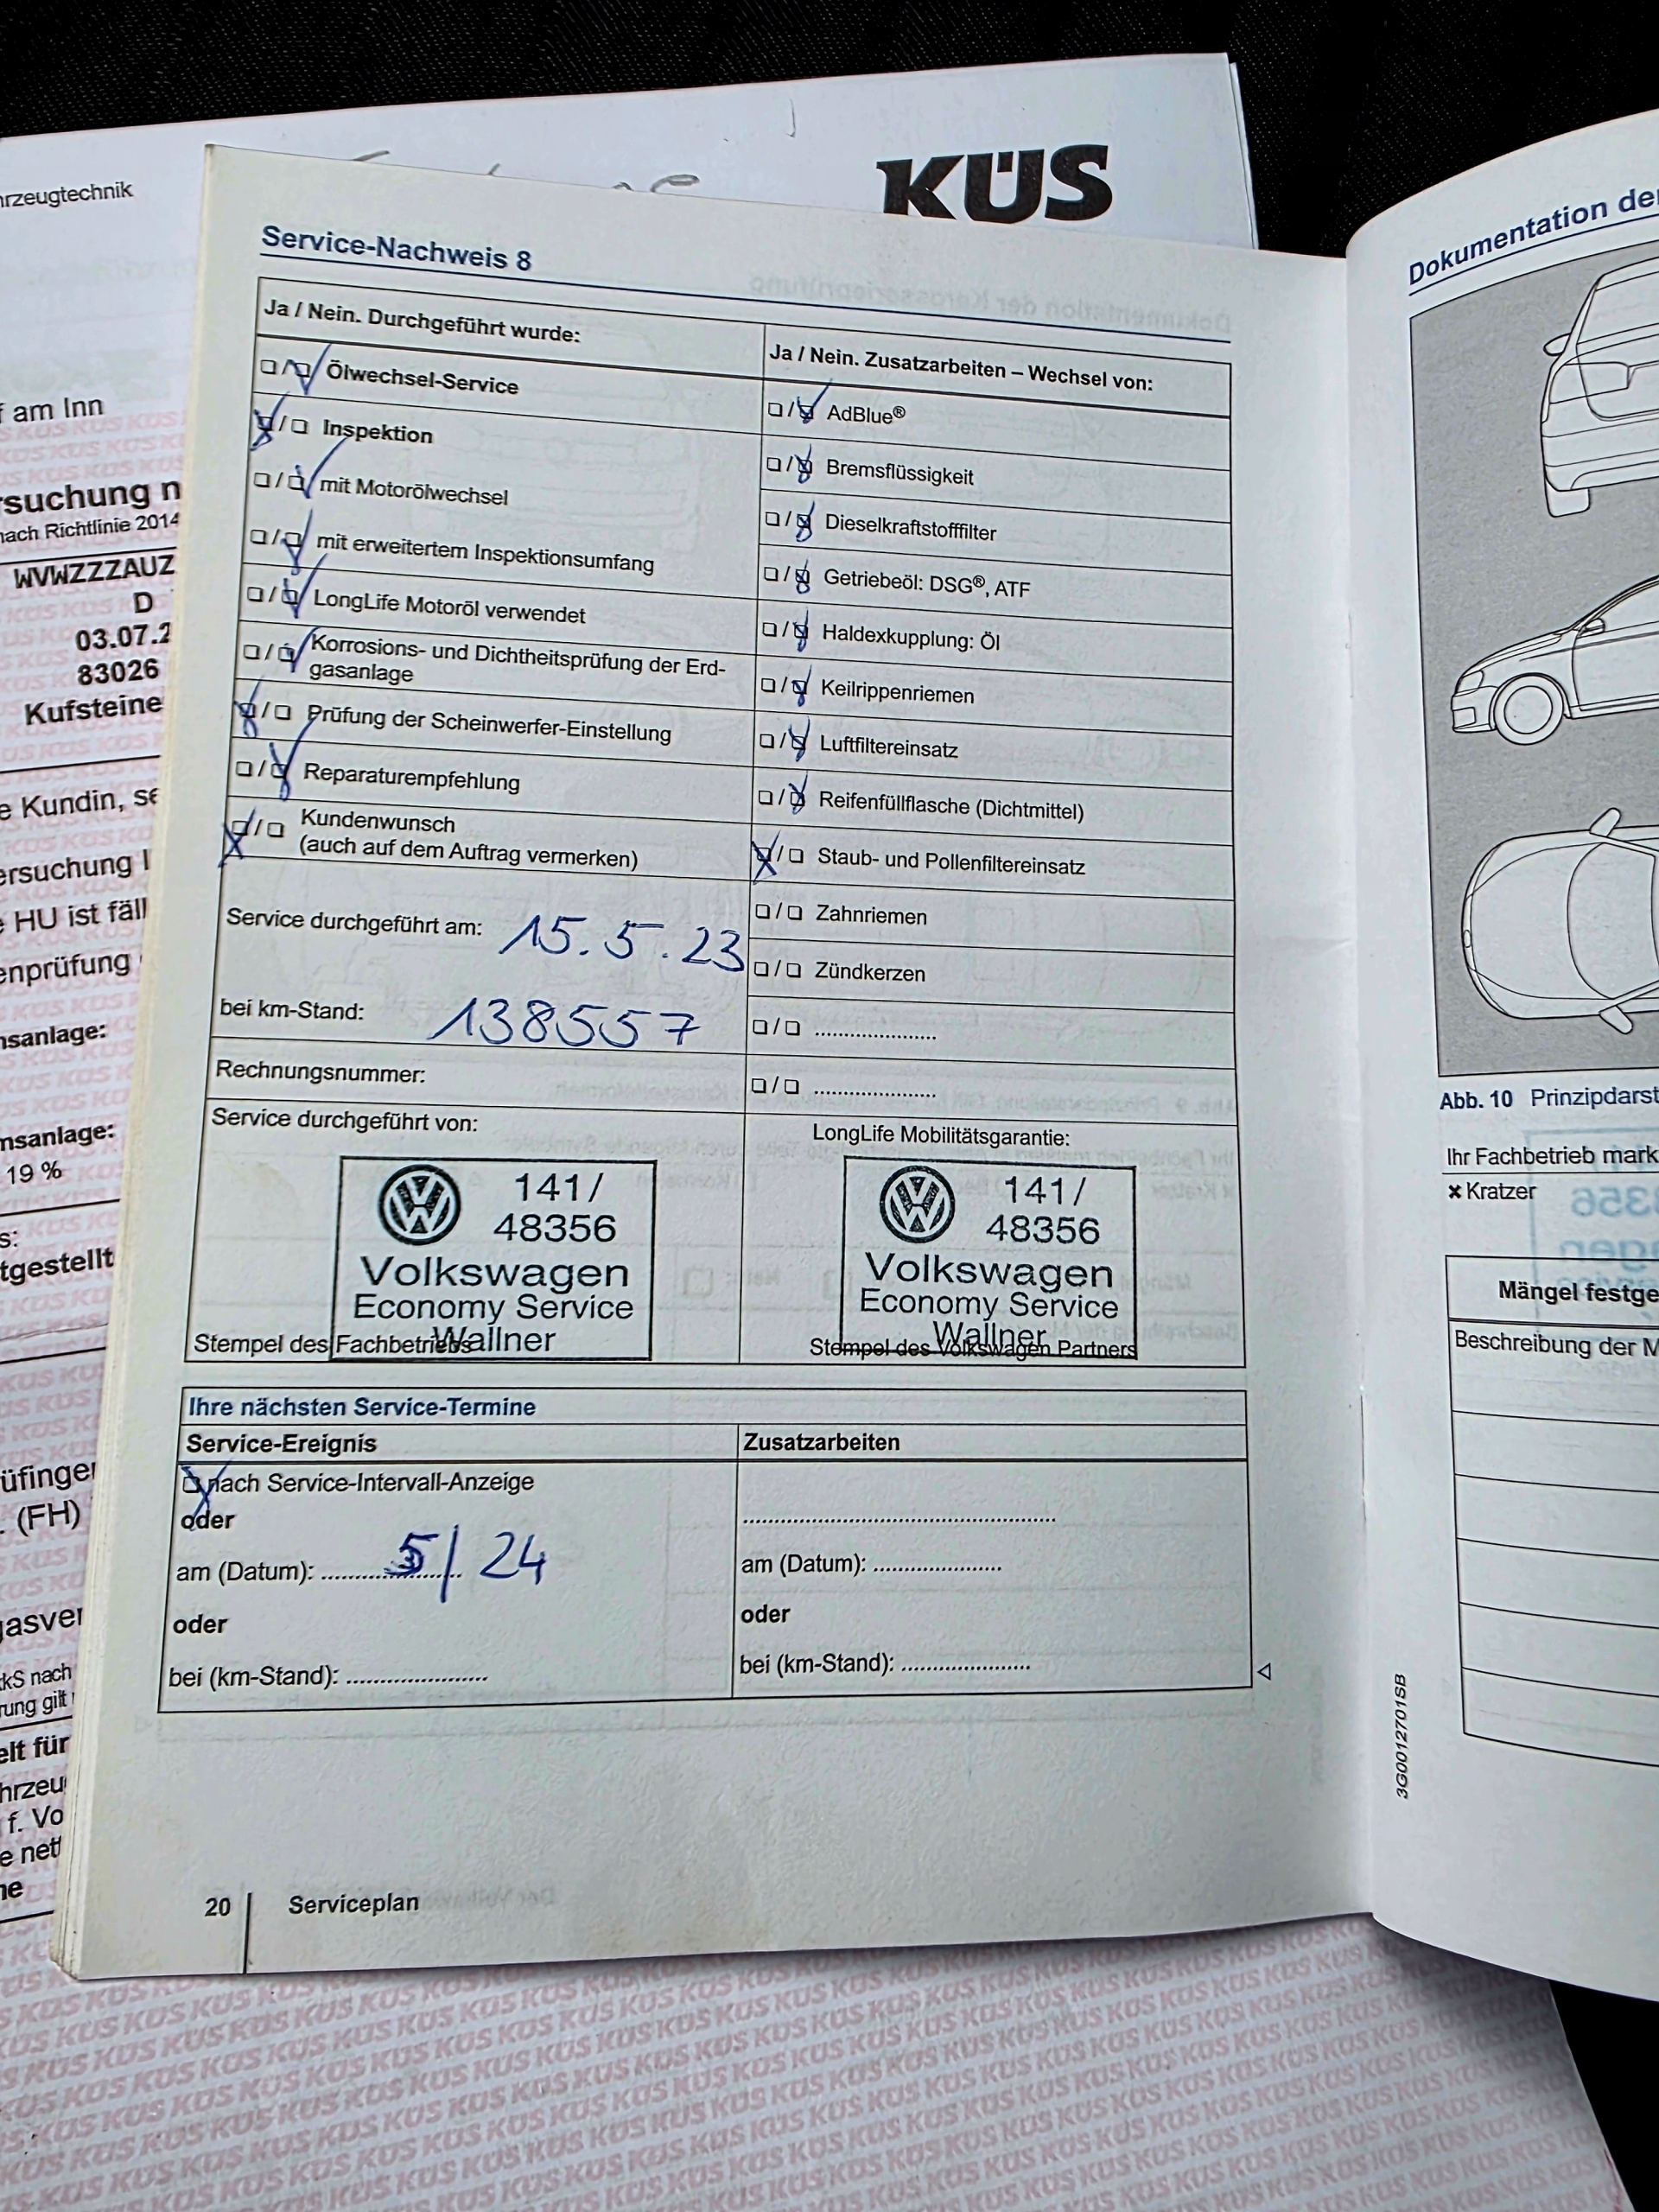 KÜS
rzeugtechnik
am Inn
suchung n
nach Richtlinie 2014
WVWZZZAUZ
D
03.07.2
83026
Kufsteine
e Kundin, se
ersuchung
HU ist fäll
enprüfung
nsanlage:
msanlage:
19 %
s:
tgestellt
üfinge
. (FH)
gasver
kS nach
rung gilt
elt für
hrzeu
f. Vo
e nett
ne
Service-Nachweis 8
Ja / Nein. Durchgeführt wurde:
Ölwechsel-Service
Inspektion
mit Motorölwechsel
mit erweitertem Inspektionsumfang
LongLife Motoröl verwendet
Korrosions- und Dichtheitsprüfung der Erd-
gasanlage
Prüfung der Scheinwerfer-Einstellung
Reparaturempfehlung
Kundenwunsch
(auch auf dem Auftrag vermerken)
Service durchgeführt am: 15.5.23
bei km-Stand: 138557
Rechnungsnummer:
Service durchgeführt von:
141/
48356
Volkswagen
Economy Service
Wallner
Stempel des Fachbetriebs
Ja / Nein. Zusatzarbeiten – Wechsel von:
AdBlue®
Bremsflüssigkeit
Dieselkraftstofffilter
Getriebeöl: DSG®, ATF
Haldexkupplung: Öl
Keilrippenriemen
Luftfiltereinsatz
Reifenfüllflasche (Dichtmittel)
Staub- und Pollenfiltereinsatz
Zahnriemen
Zündkerzen
LongLife Mobilitätsgarantie:
141/
48356
Volkswagen
Economy Service
Wallner
Stempel des Volkswagen Partners
Ihre nächsten Service-Termine
Service-Ereignis
nach Service-Intervall-Anzeige
oder
am (Datum): 5/24
oder
bei (km-Stand): ......................
Zusatzarbeiten
am (Datum): ....................
oder
bei (km-Stand): ....................
20 Serviceplan
Dokumentation der
Abb. 10 Prinzipdarst
Ihr Fachbetrieb mark
× Kratzer
Mängel festge
Beschreibung der M
3G0012701SB